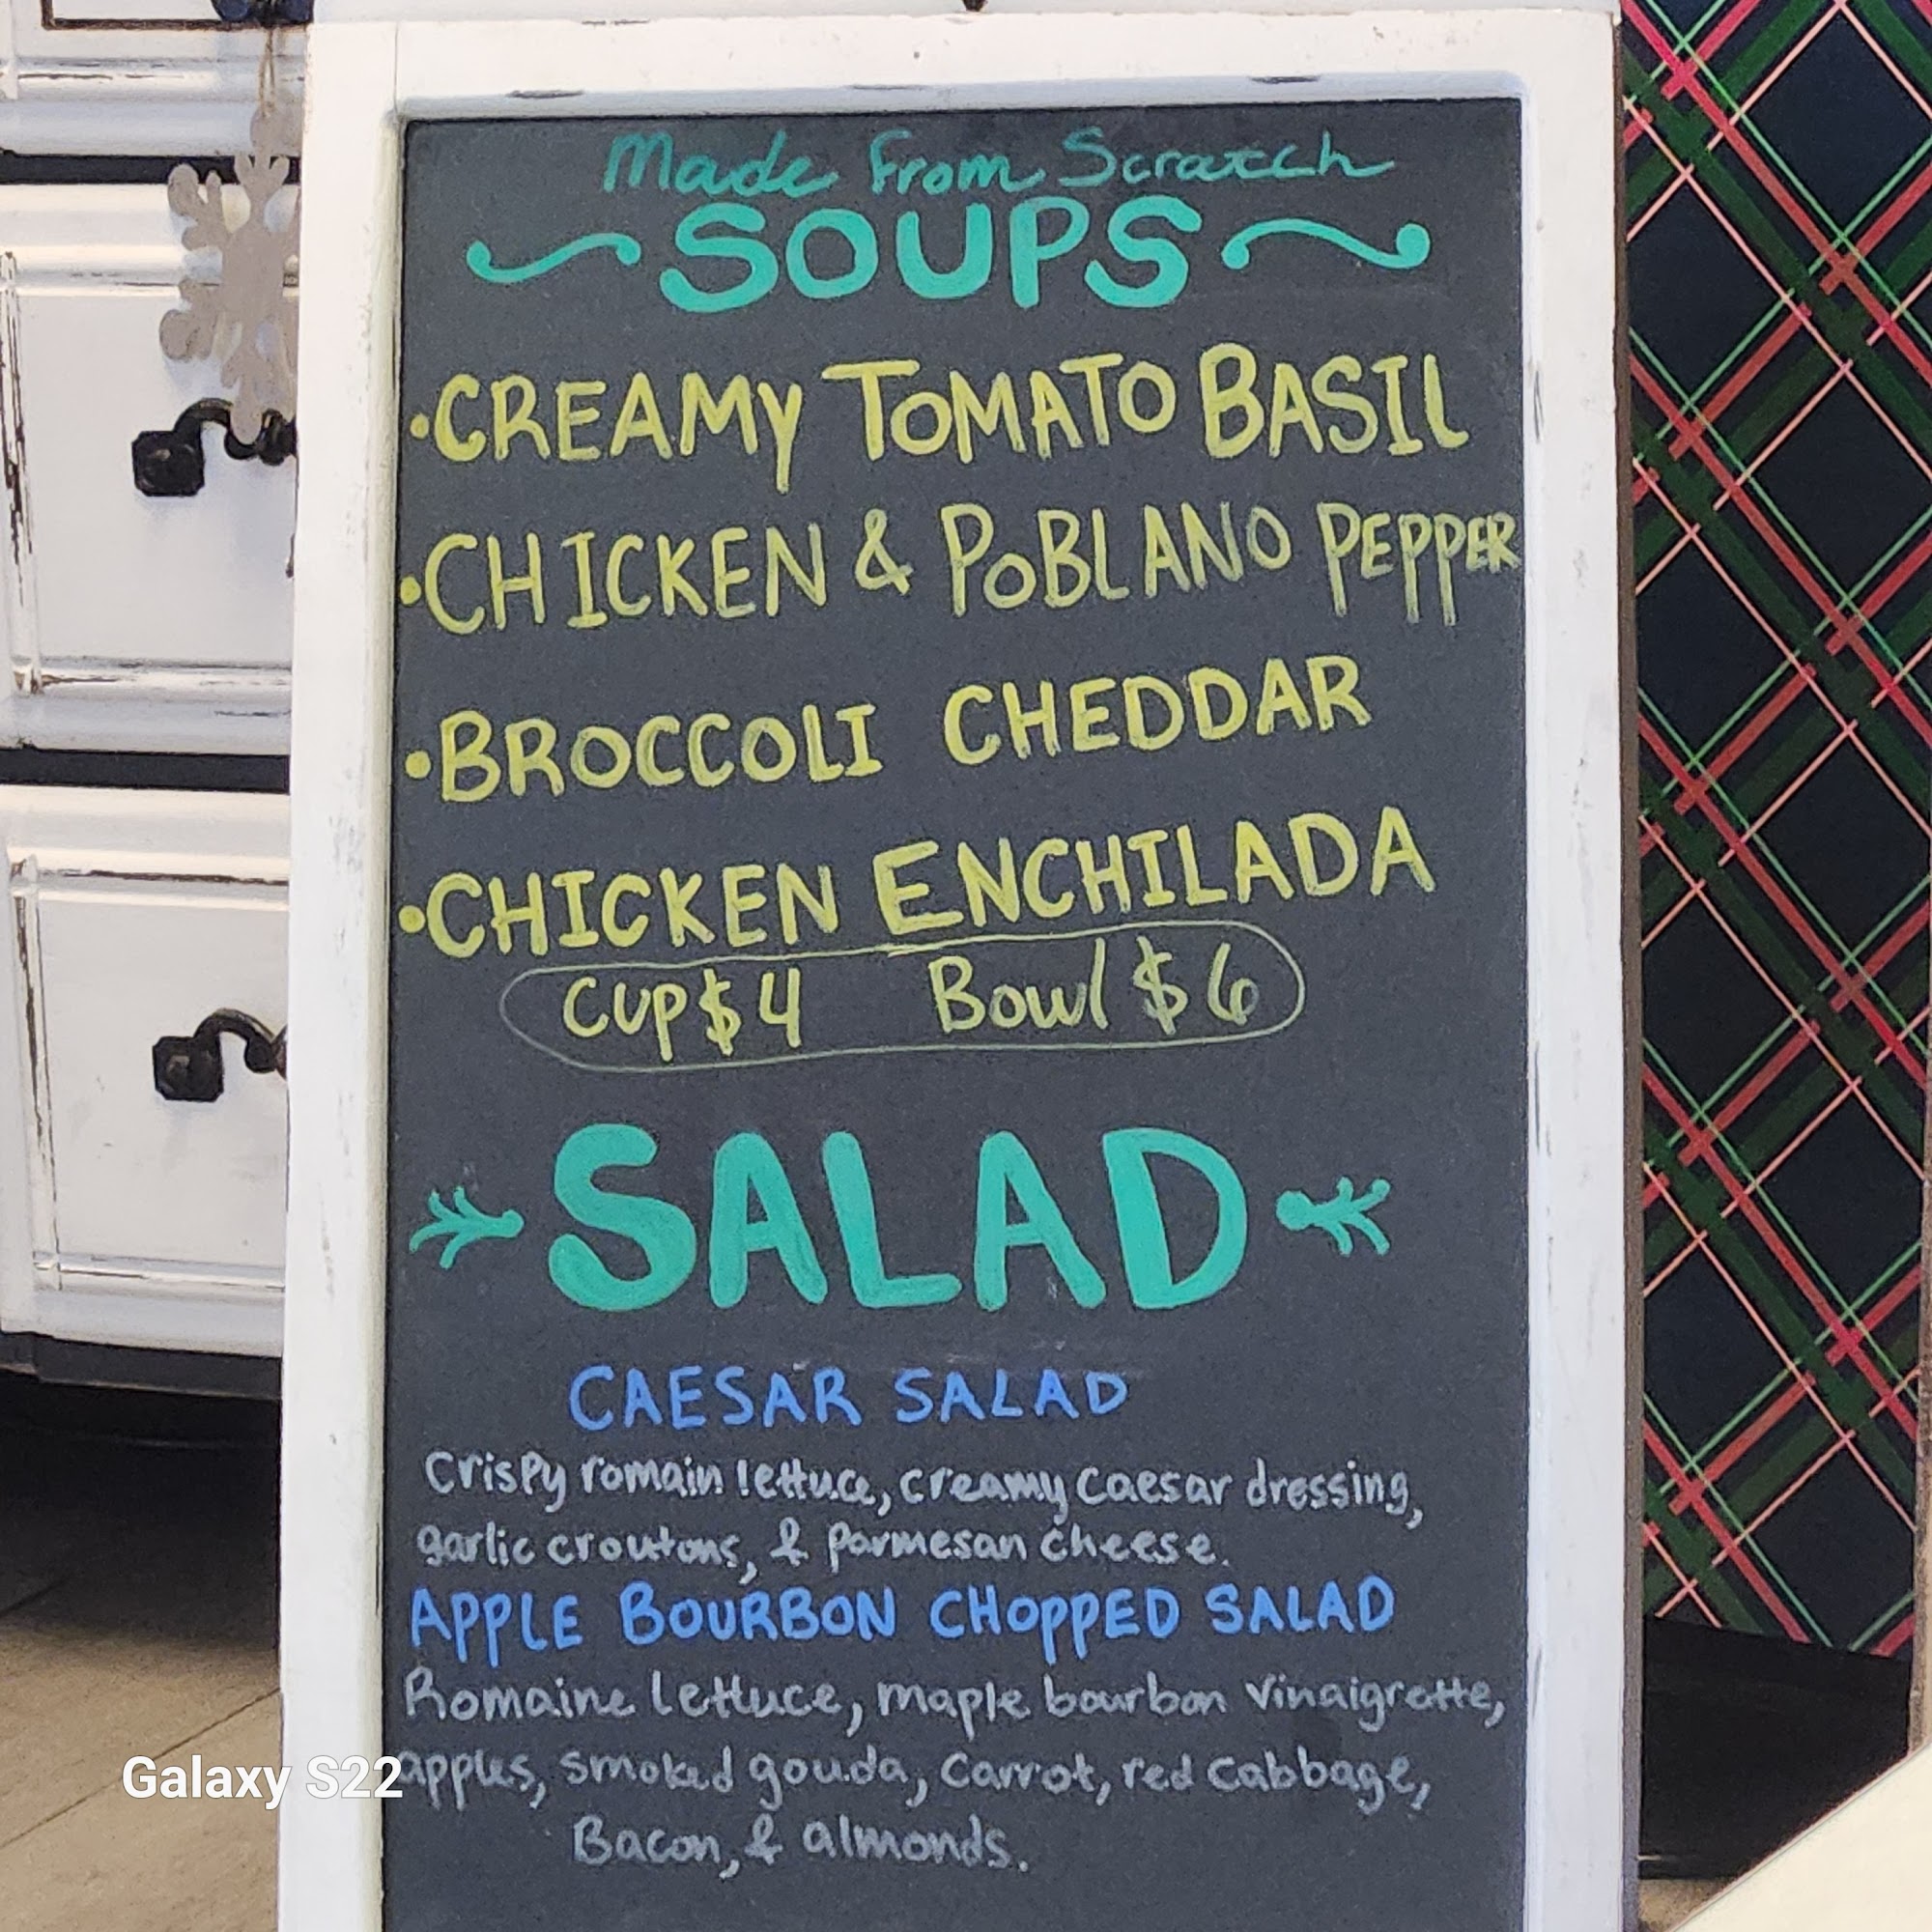 Made From Scratch
SOUPS
•CREAMY TOMATO BASIL
•CHICKEN & POBLANO PEPPER
•BROCCOLI CHEDDAR
•CHICKEN ENCHILADA
Cup $4 Bowl $6
SALAD
CAESAR SALAD
Crispy romain lettuce, creamy caesar dressing,
garlic croutons, & parmesan cheese.
APPLE BOURBON CHOPPED SALAD
Romaine lettuce, maple bourbon vinaigrette,
apples, smoked gouda, carrot, red cabbage,
Bacon, & almonds.
Galaxy S22